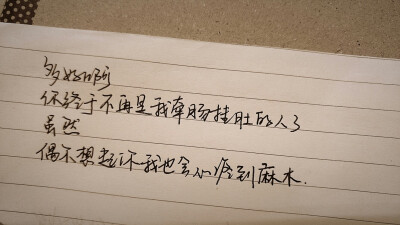 多好啊
你终于不再是我牵肠挂肚的人了
虽然
偶尔想起你我也会心疼到麻木.